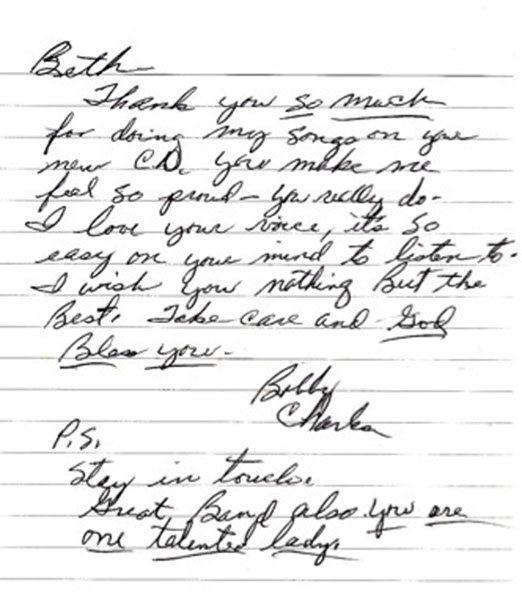 Beth
Thank you so much
for doing my songs on your
new C.D. you make me
feel so proud - you really do -
I love your voice, it's so
easy on your mind to listen to.
I wish you nothing But the
Best. Take care and God
Bless you -
Bobby
Charles
P.S.
Stay in touch.
Great Band also. you are
one talented lady.